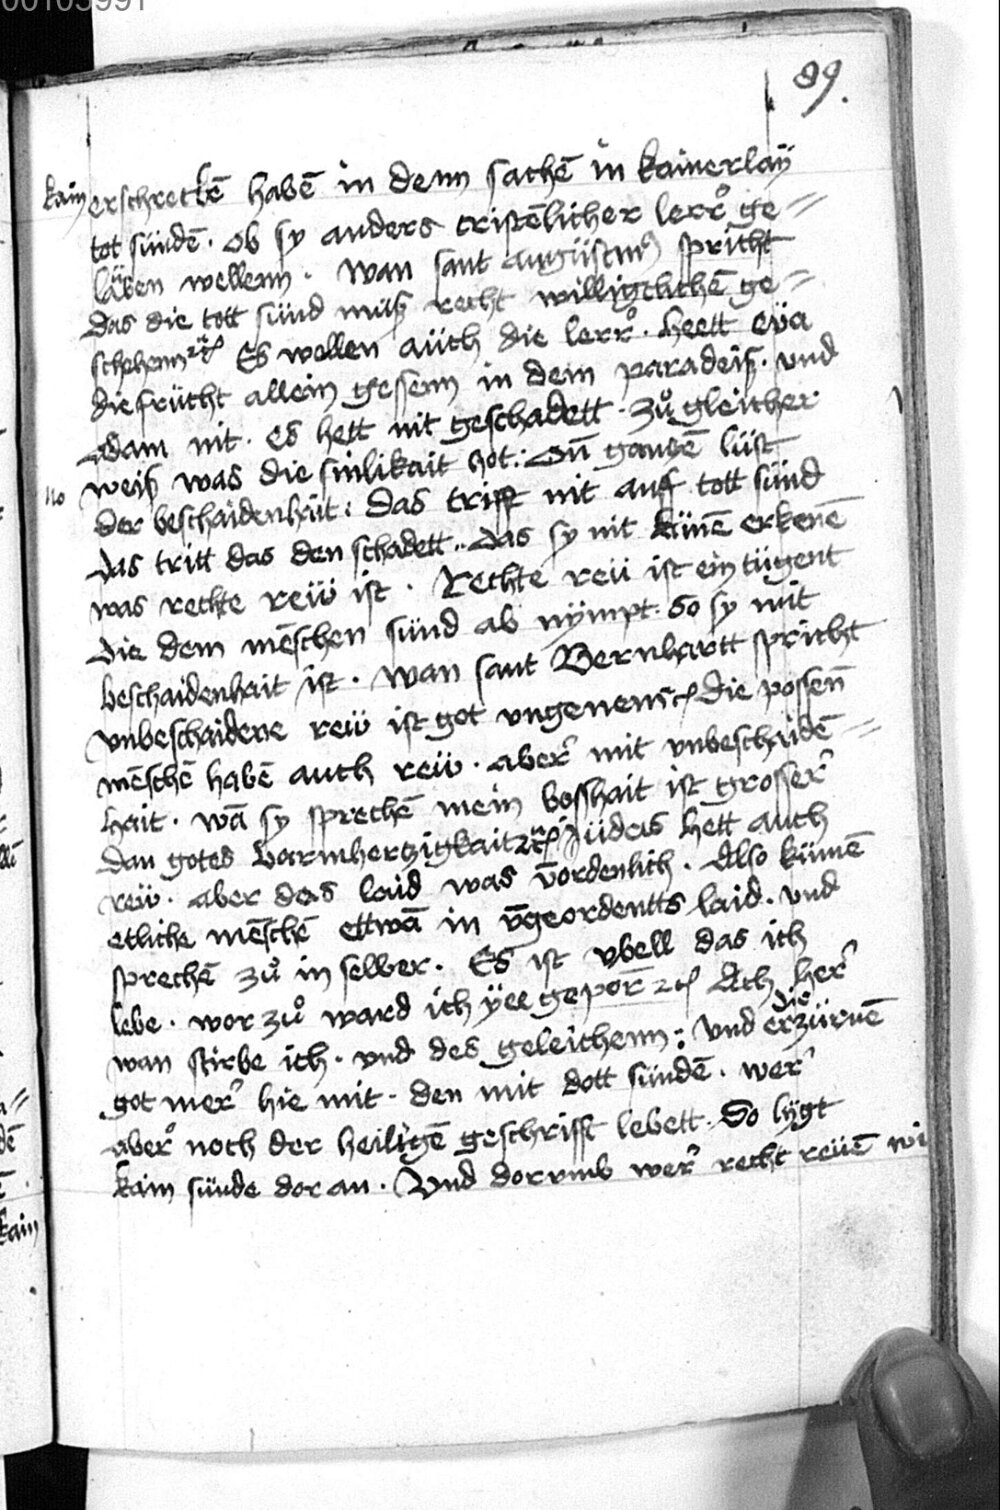 89.
kain erschrecken habē in denn sachē in kainerlaÿ
tot sündē. ob sy anders cristēlicher lerr ge=
läben wellenn. wan sant augustinus spricht
das die tott sünd müß recht willigclichē ge=
schehenn etc. Es wellen aüch die lerr. hett eua
die frücht allein gessenn in dem paradeiß. vnd
Adam nit. es hett nit geschadett. zů gleicher
weiß was die sinlikait hot: on gancē lüst
no
der beschaidenhait: das trifft nit auff tott sünd
das tritt das den schadett. das sy nit künē erkenē
was rechte reẅ ist. Rechte reü ist ein tügent
die dem mēschen sünd ab nÿmpt. So sy mit
beschaidenhait ist. wan sant Bernhartt spricht
vnbeschaidene reẅ ist got vngenem etc. die possenn
mēschē habē auch reẅ. aber mit vnbeschaidē=
hait. wā sy sprechē mein bosshait ist grosser
dan gotes barmherzigkait etc. Jüdas hett auch
reẅ. aber das laid was v̄ordenlich. Also kümē
etliche mēschē ettwā in v̄geordentts laid. vnd
sprechē zů in selber. Es ist vbell das ich
lebe. wor zů ward ich ÿe geporn etc. Ach her
wan stirbe ich. vnd des geleichenn: vnd die erzürnē
got mer hie mit. den mit dott sündē. wer
aber noch der heiligē geschrifft lebett. So lygt
kain sünde dor an. Vnd dorvmb wer recht reüē wi